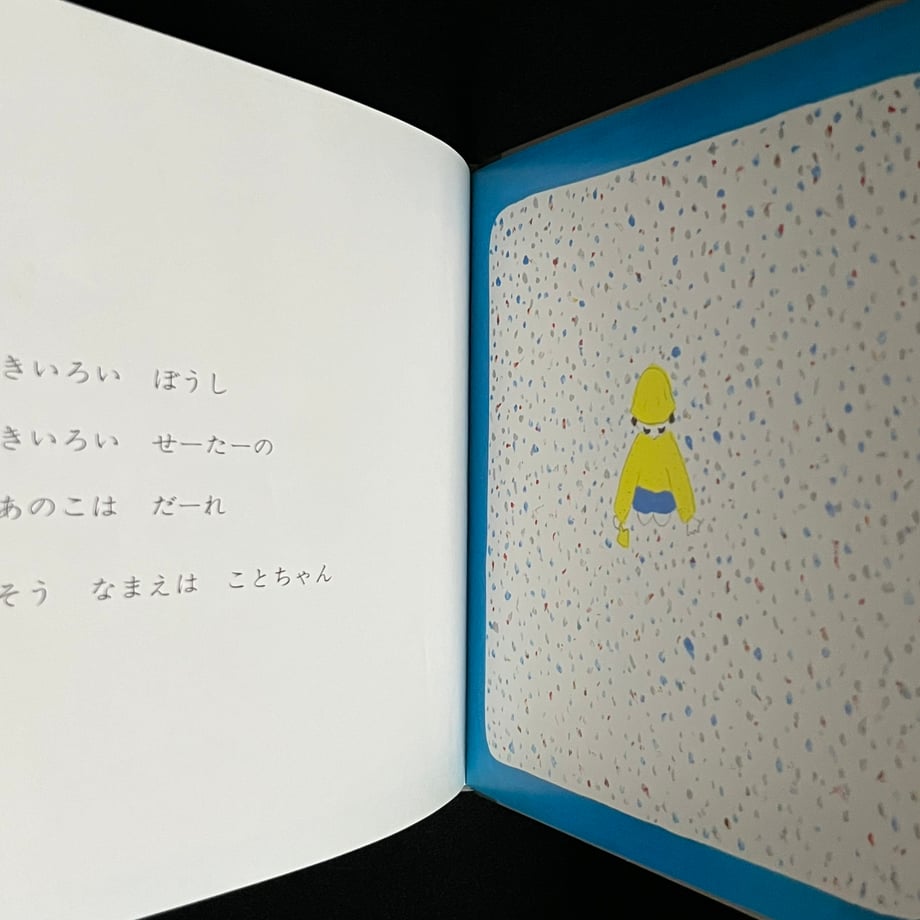 きいろい ぼうし
きいろい せーたーの
あのこは だーれ
そう なまえは ことちゃん